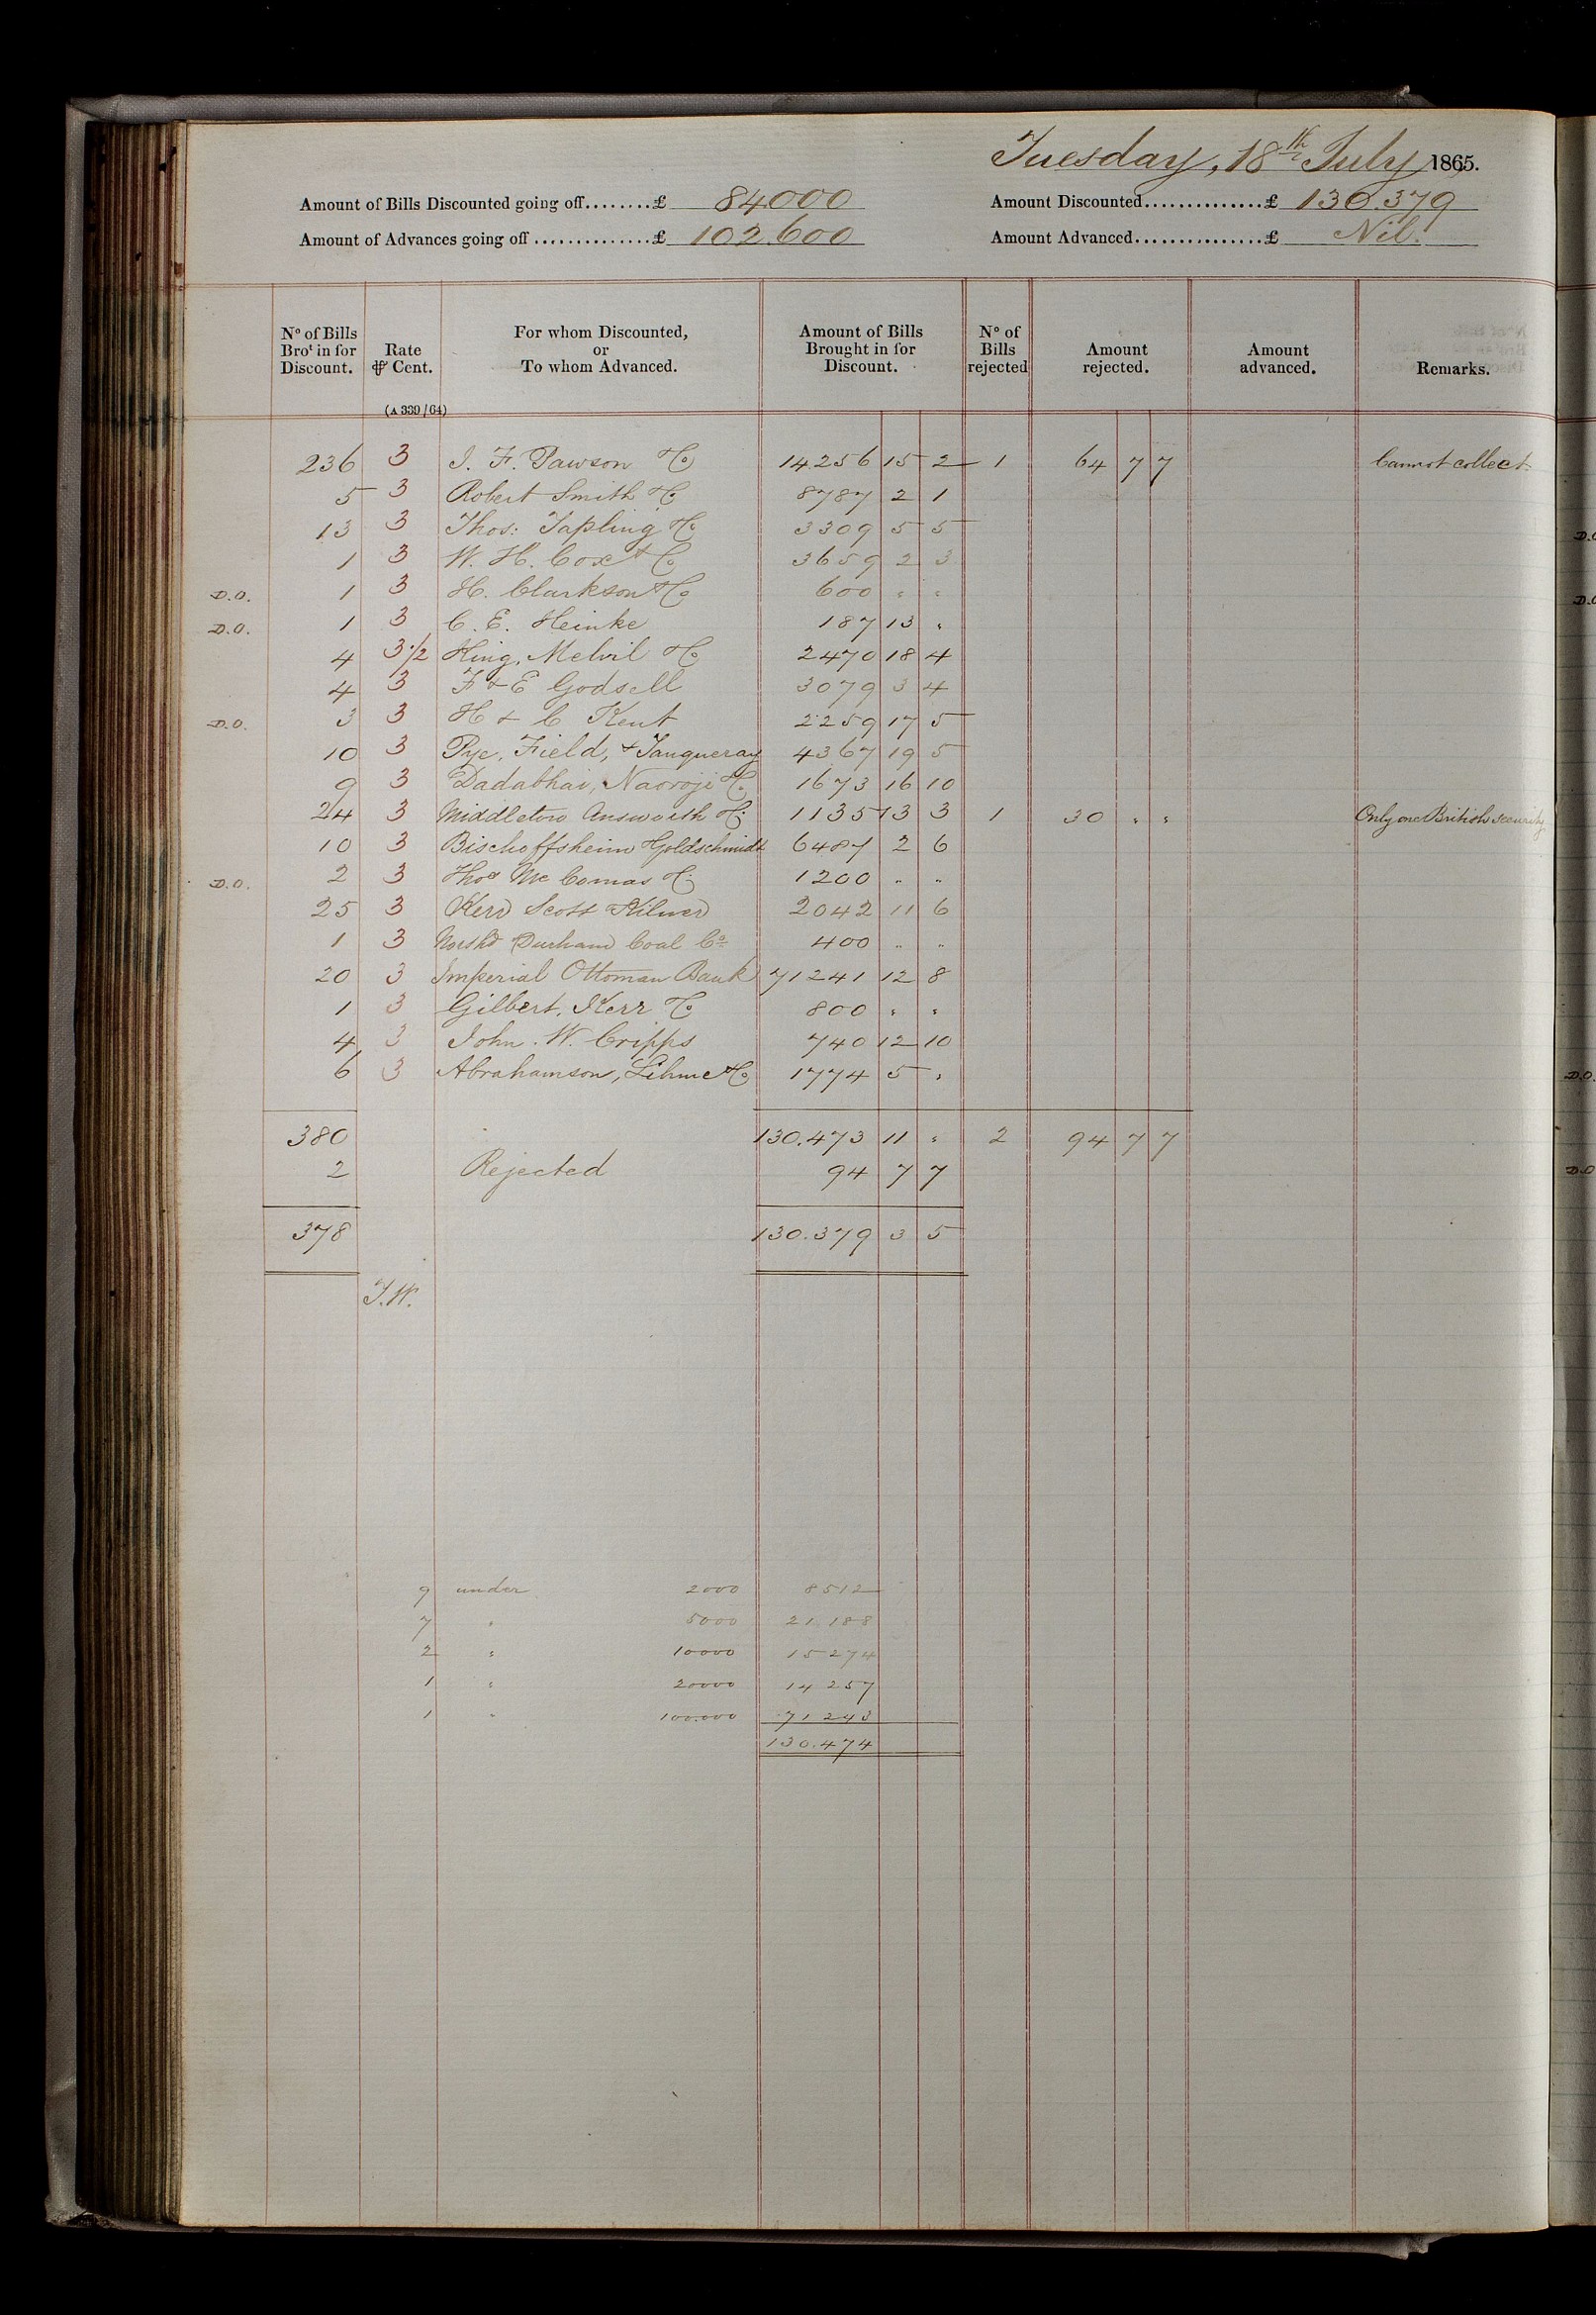 Tuesday, 18th July 1865.
Amount of Bills Discounted going off........£ 84000 Amount Discounted..............£ 130.379
Amount of Advances going off...............£ 102.600 Amount Advanced................£ Nil.
No of Bills Brot in for Discount. Rate ⅌ Cent. (A 339/64) For whom Discounted, or To whom Advanced. Amount of Bills Brought in for Discount. No of Bills rejected Amount rejected. Amount advanced. Remarks.
236 3 J. F. Pawson & Co 14256 15 2 1 64 7 7 Cannot collect
5 3 Robert Smith & Co 8787 2 1
13 3 Thos: Tapling & Co 3309 5 5
1 3 W. H. Cox & Co 3659 2 3
D.O. 1 3 H. Clarkson & Co 600 " "
D.O. 1 3 C. E. Heinke 187 13 "
4 3 1/2 King, Melvil & Co 2470 18 4
4 3 F & E Godsell 3079 3 4
D.O. 3 3 H & C Kent 2259 17 5
10 3 Pye, Field, & Tanqueray 4367 19 5
9 3 Dadabhai, Naoroji & Co 1673 16 10
24 3 Middleton Answorth & Co 1135 13 3 1 30 " " Only one British security
10 3 Bischoffsheim Goldschmidt 6487 2 6
D.O. 2 3 Thos Mc Comas & Co 1200 " "
25 3 Kerr Scott & Kilner 2042 11 6
1 3 North & Durham Coal Co 400 " "
20 3 Imperial Ottoman Bank 71241 12 8
1 3 Gilbert, Kerr & Co 800 " "
4 3 John. W. Cripps 740 12 10
6 3 Abrahamson, Lihme & Co 1774 5 "
380 130.473 11 " 2 94 7 7
2 Rejected 94 7 7
378 130.379 3 5
T.W.
9 under 2000 8512
7 " 5000 21.188
2 " 10000 15274
1 " 20000 14257
1 " 100.000 71243
130.474